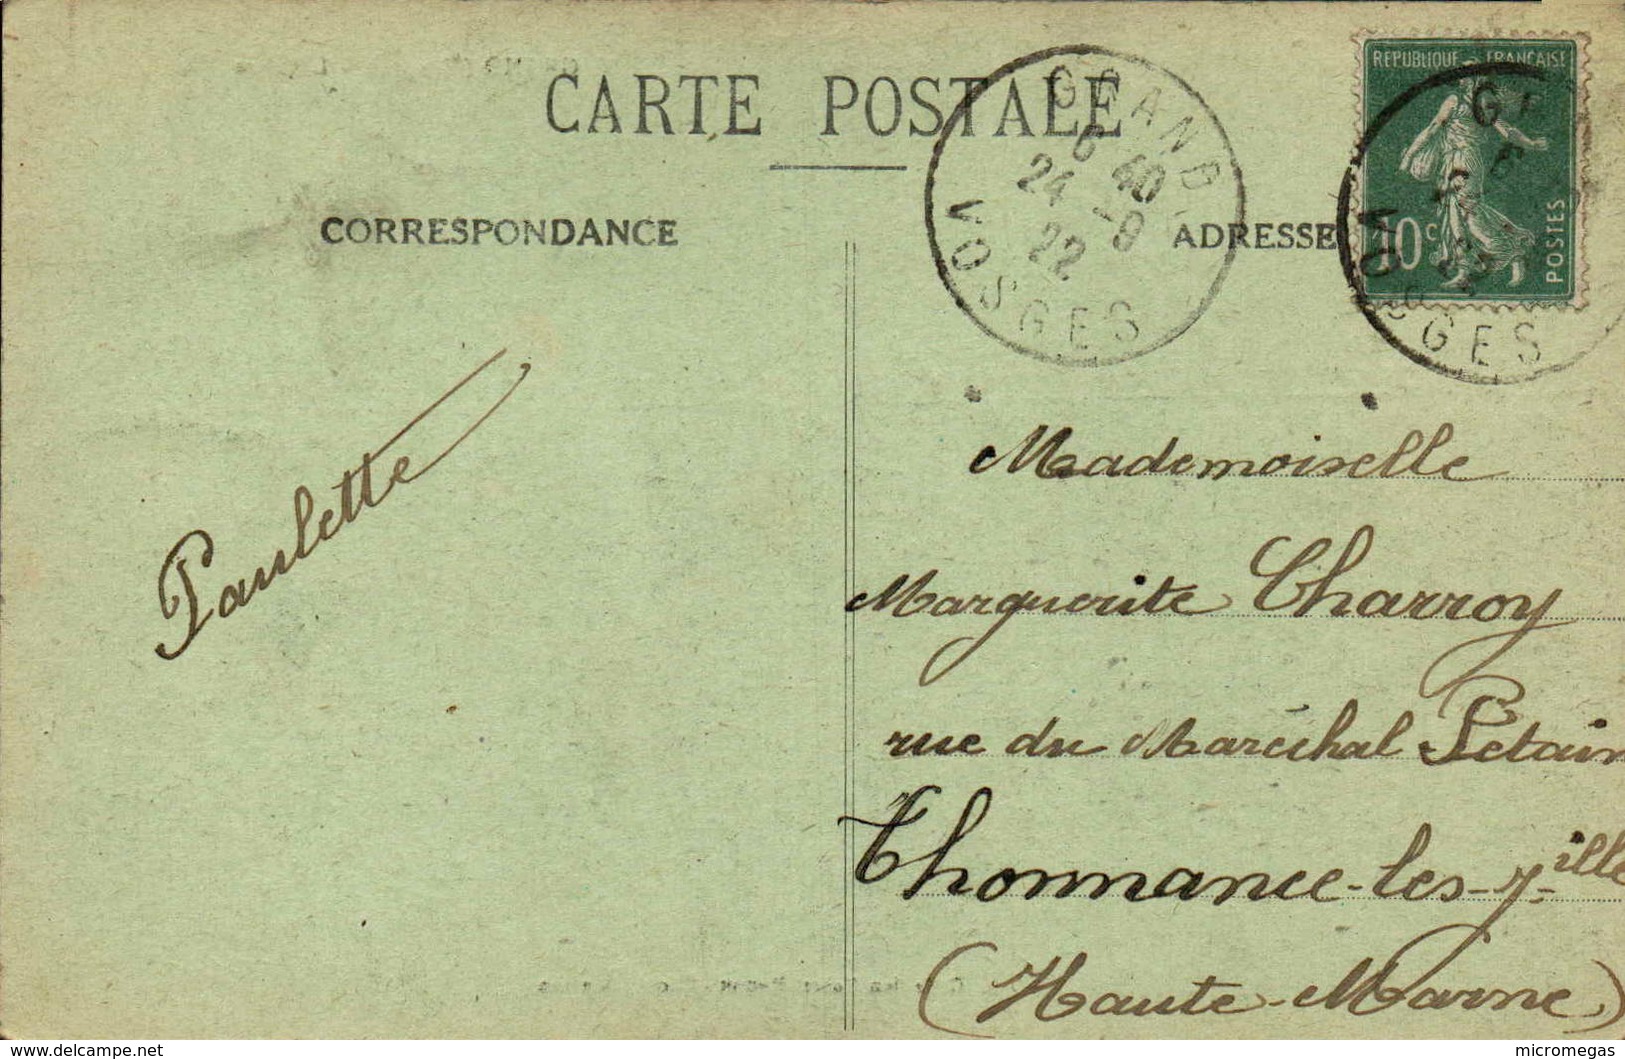 CARTE POSTALE
CORRESPONDANCE
ADRESSE
GRAND
6 40
24 - 9
22
VOSGES
REPUBLIQUE FRANÇAISE
10 c
POSTES
VOSGES
Paulette
Mademoiselle
Marguerite Charroy
rue du Maréchal Petain
Thonnance-les-J-ille
(Haute-Marne)
www.delcampe.net
micromegas